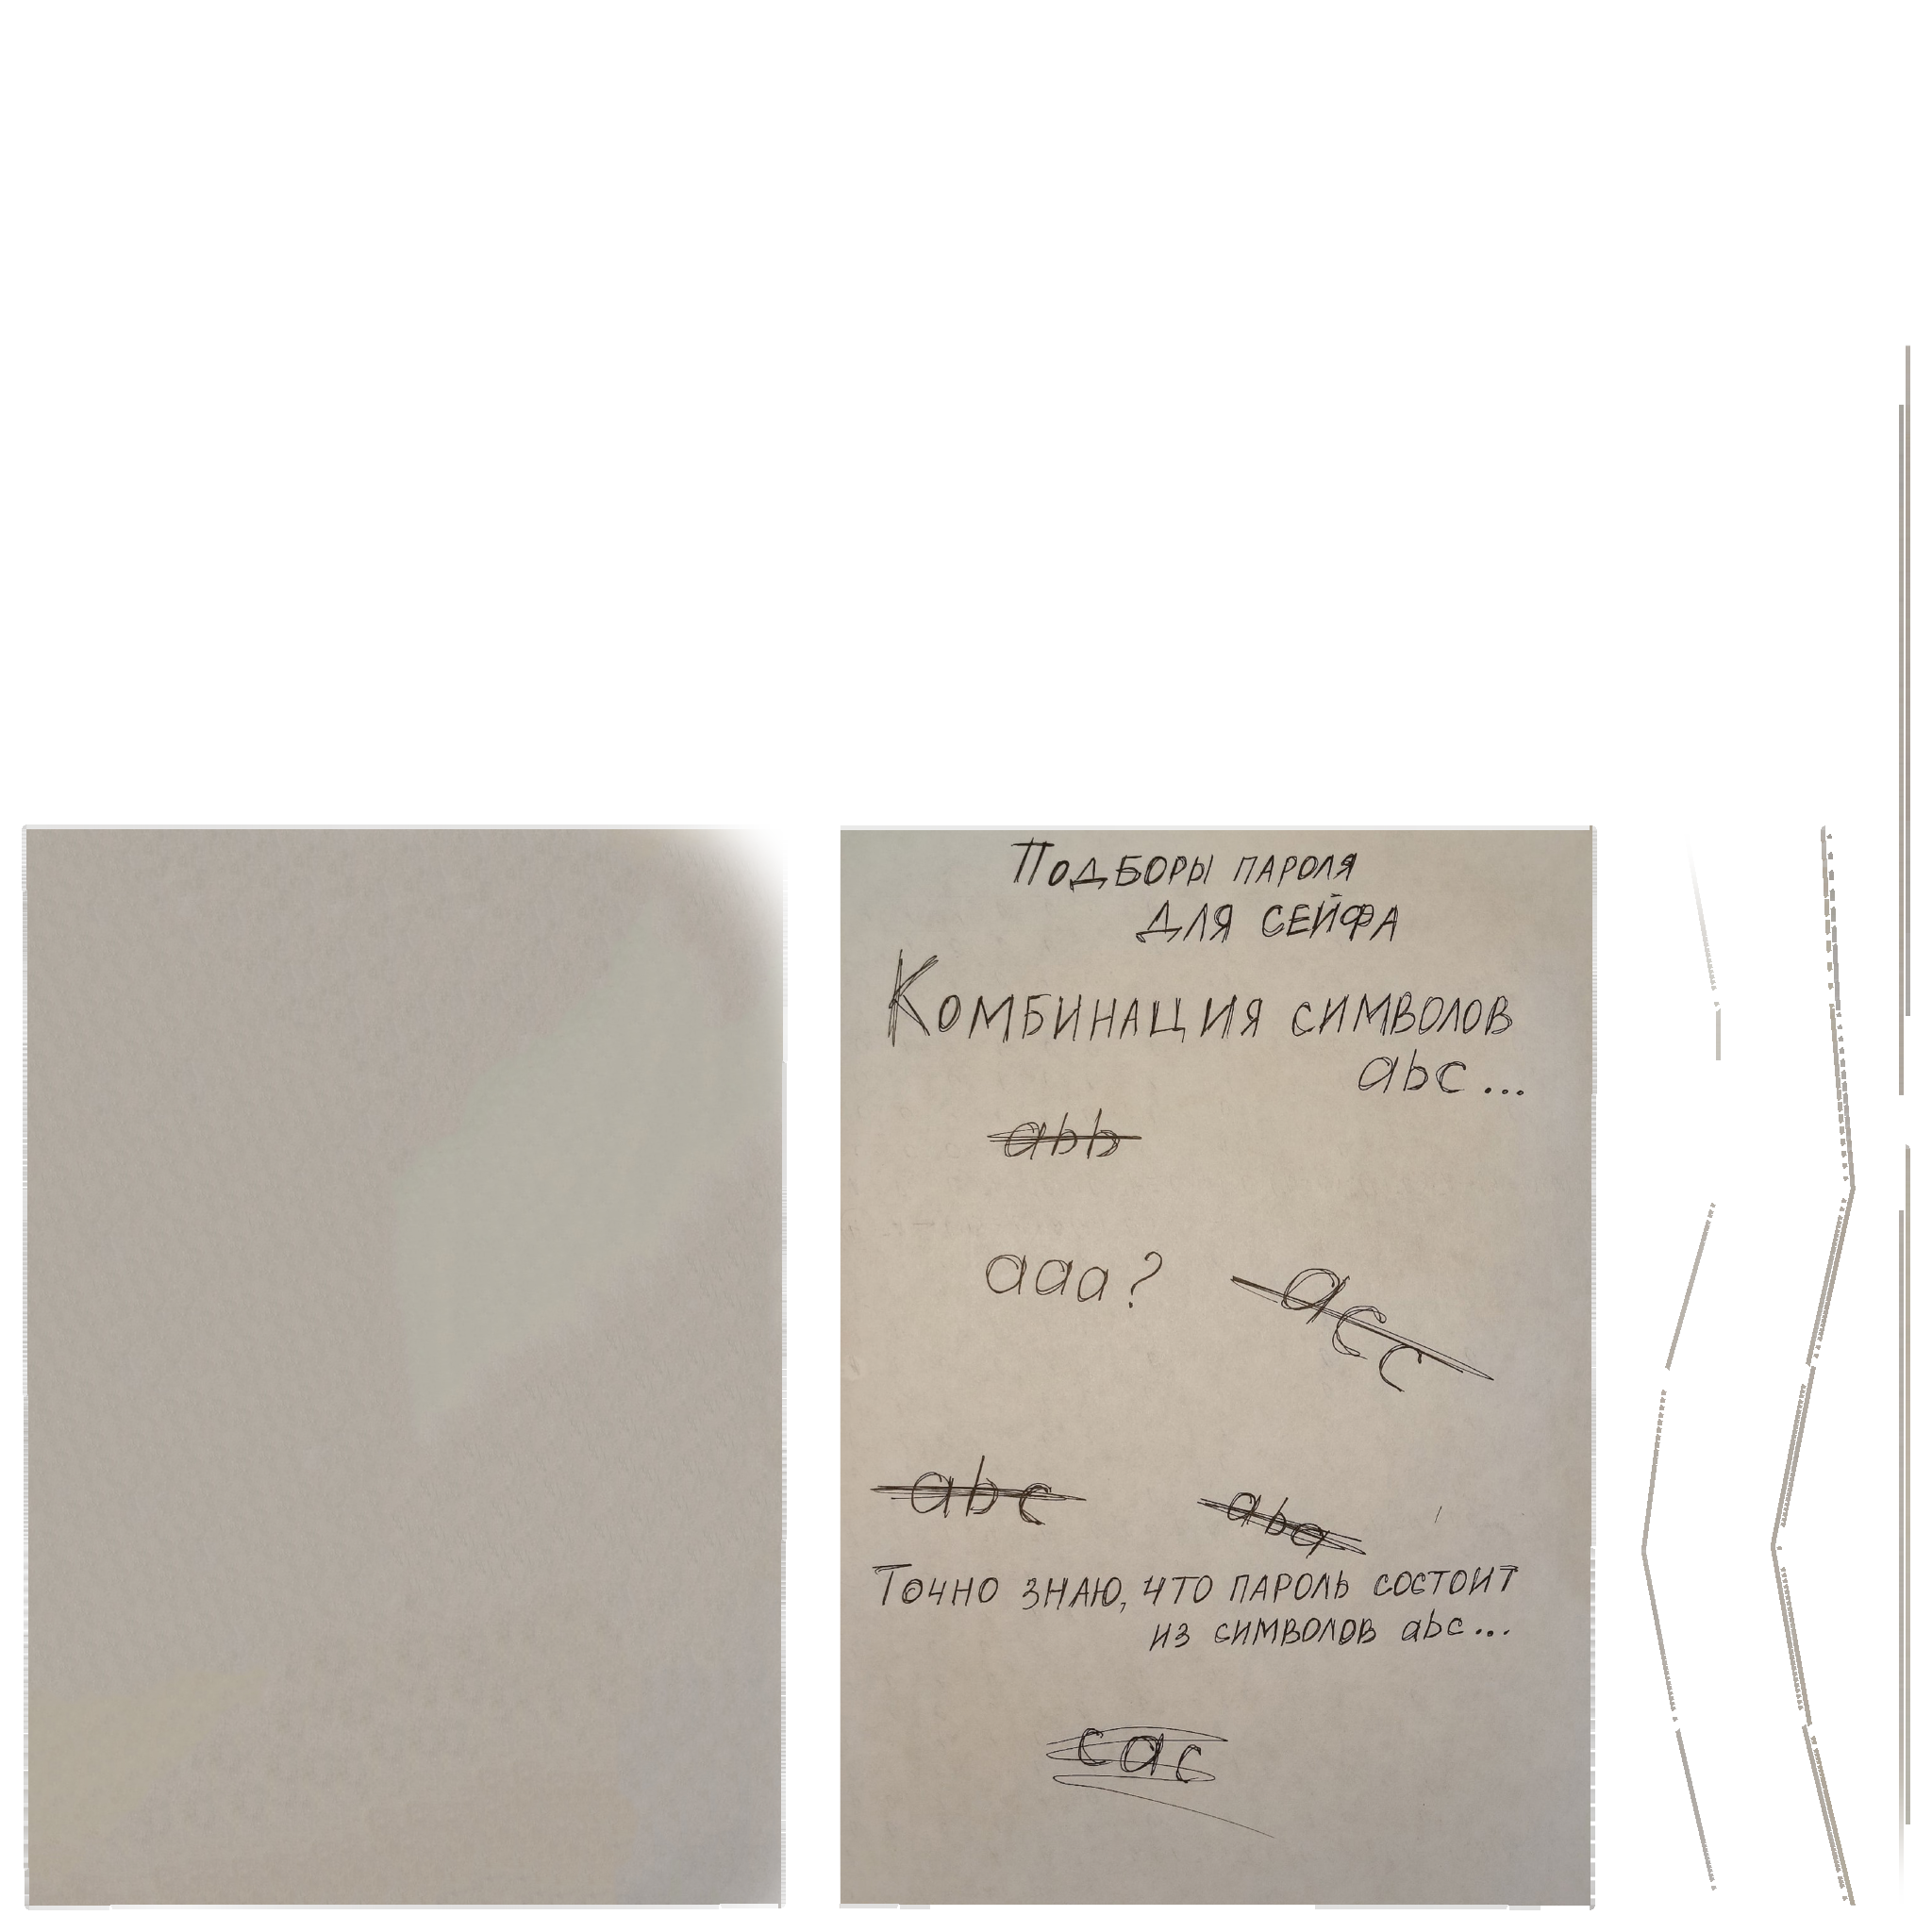 Подборы пароля
для сейфа
Комбинация символов
abc...
abb
aaa?
acc
abc
aba
Точно знаю, что пароль состоит
из символов abc...
cac